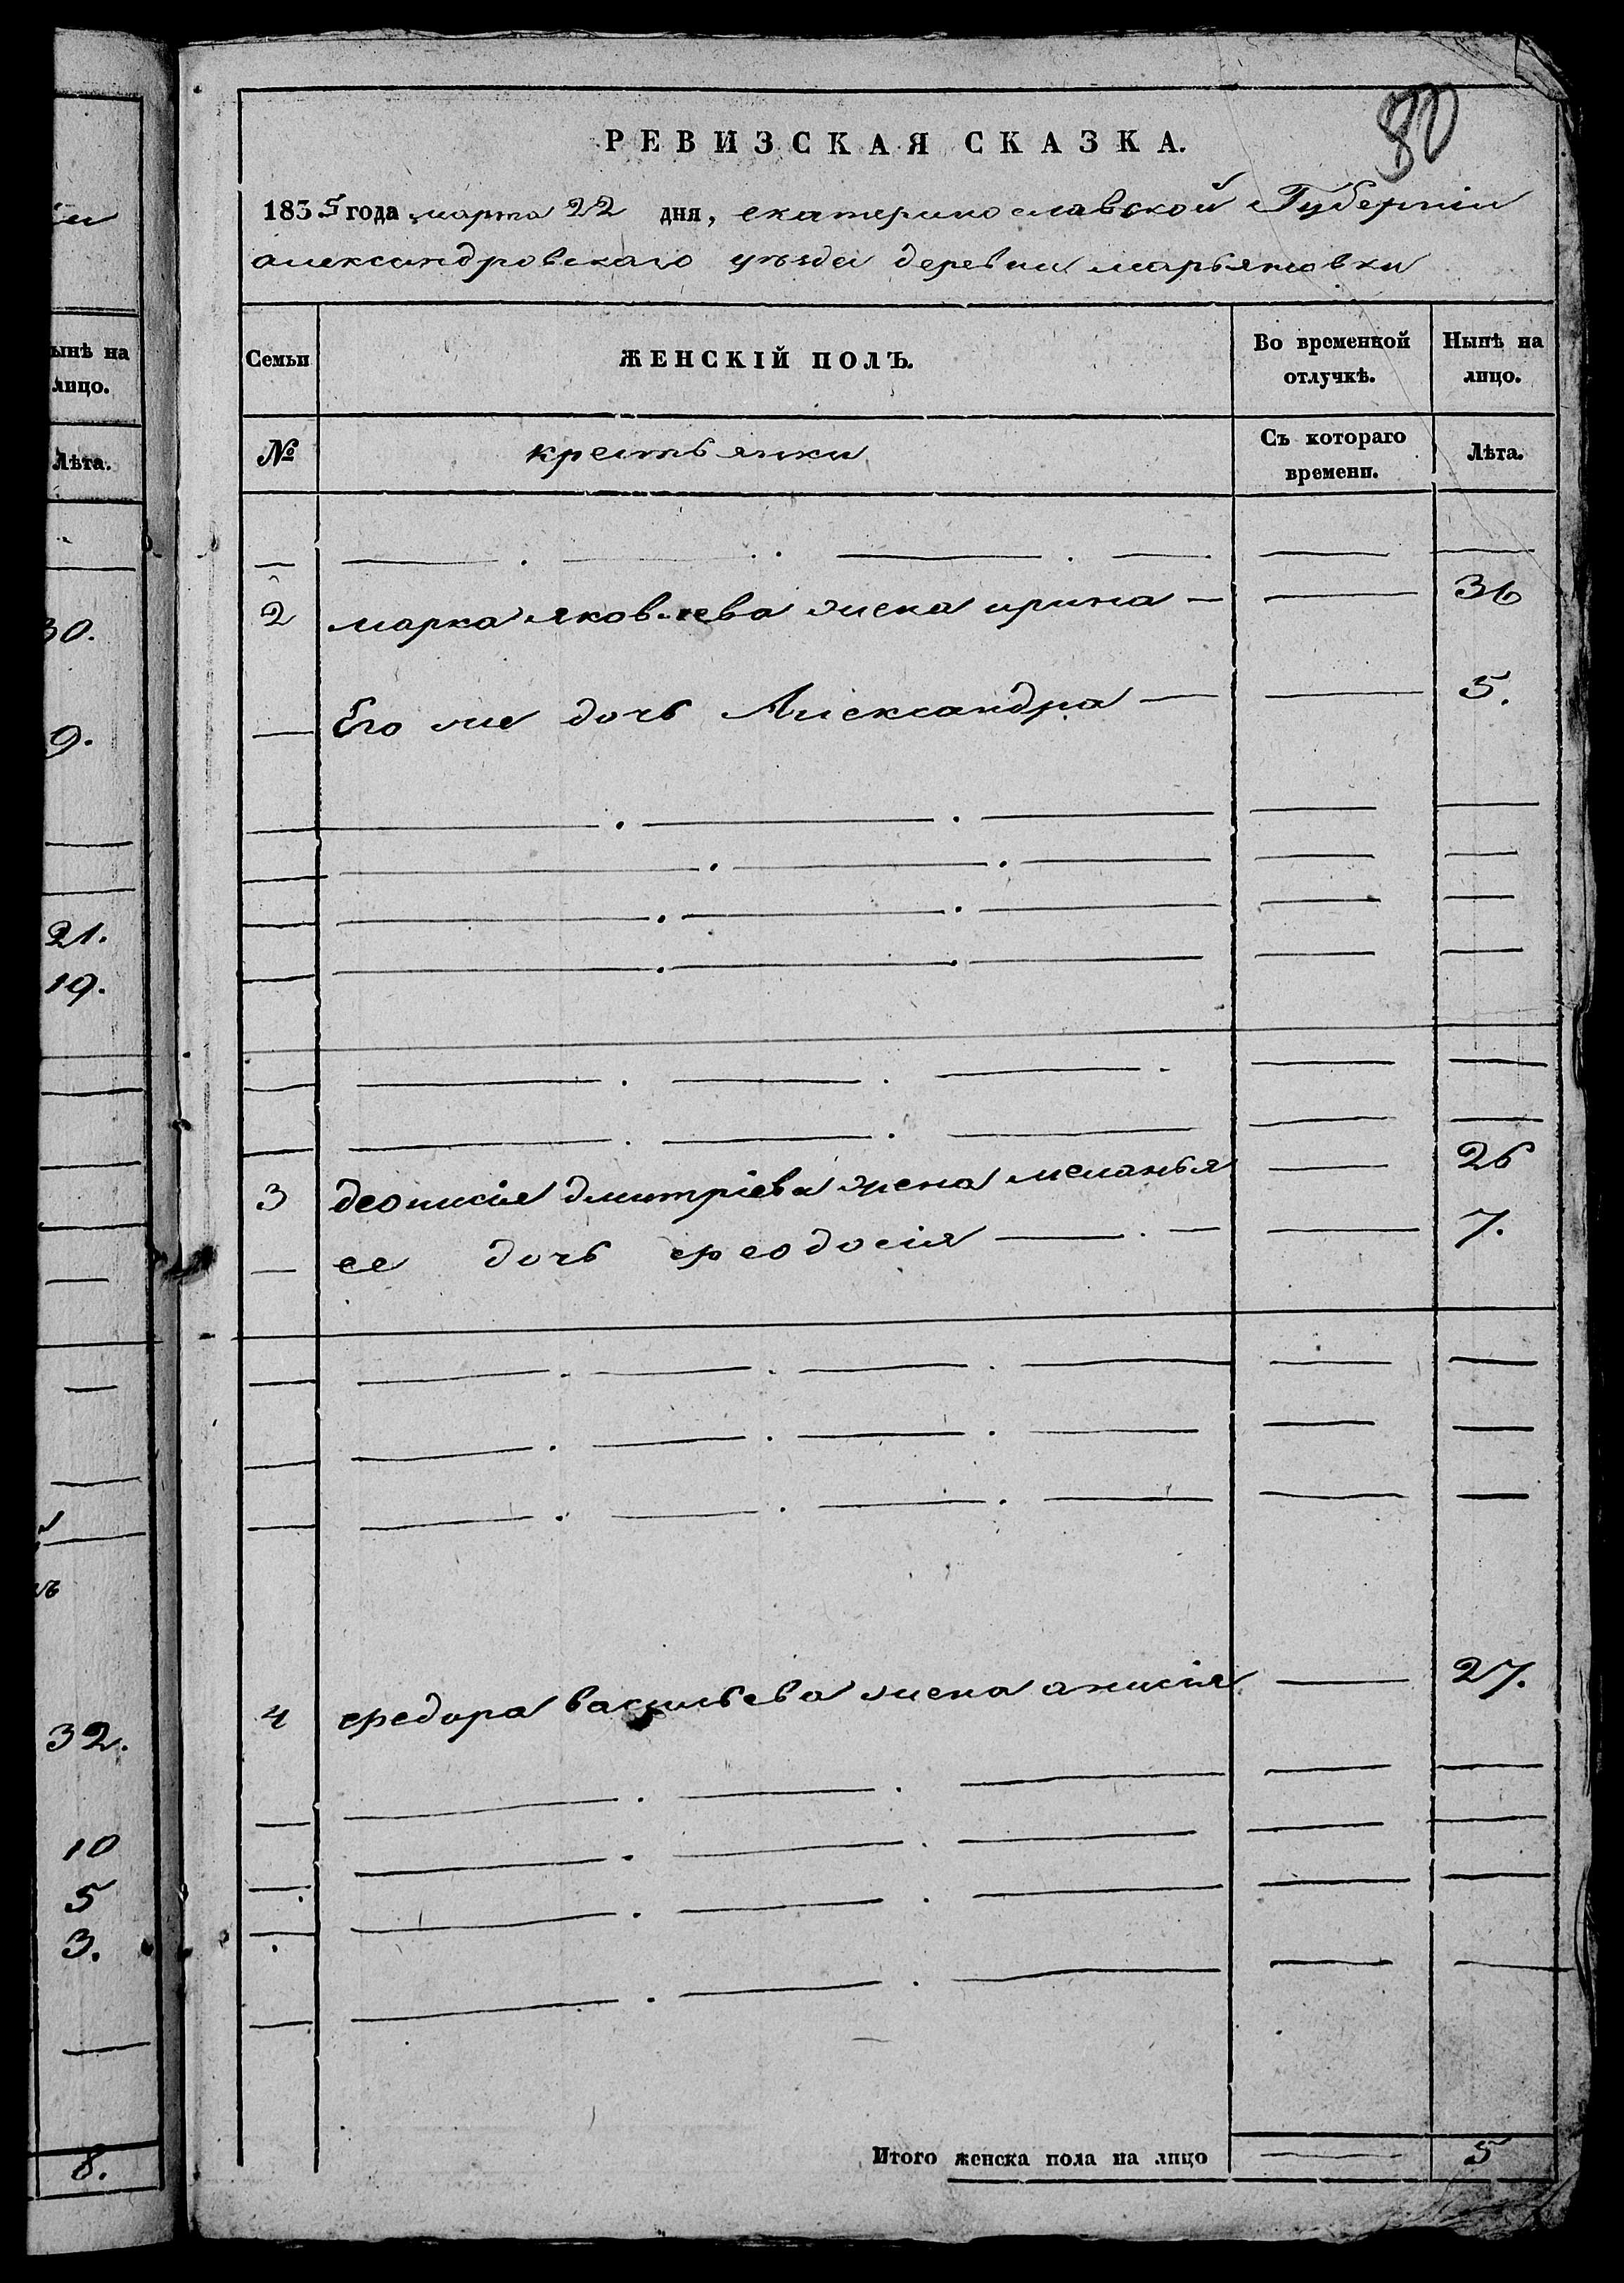 80
РЕВИЗСКАЯ СКАЗКА.
1835 года марта 22 дня, екатеринославской Губерніи
александровскаго уѣзда деревни марьяновки
Семьи ЖЕНСКІЙ ПОЛЪ. Во временной отлучкѣ. Нынѣ на лицо.
№ крестьянки Съ котораго времени. Лѣта.
2 марка яковлева жена ирина — — 36
— Его же дочь Александра — — 5.
3 деонисія дмитріева жена меланья — 26
— ее дочь феодосія — . — — 7.
4 федора васильева жена анисія — 27.
Итого женска пола на лицо — 5
ынѣ на
лицо.
Лѣта.
30.
9.
21.
19.
32.
10
5
3.
8.